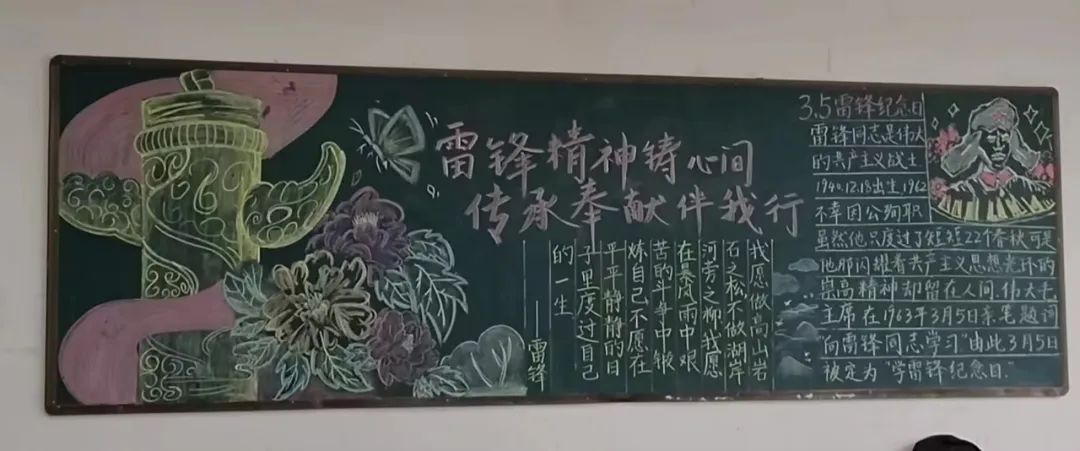 雷锋精神铸心间
传承奉献伴我行
我愿做高山岩
石之松不做湖岸
河旁之柳我愿
在暴风雨中艰
苦的斗争中锻
炼自己不愿在
平平静静的日
子里度过自己
的一生
——雷锋
3.5雷锋纪念日
雷锋同志是伟大
的共产主义战士
1940.12.18出生1962
不幸因公殉职
虽然他只度过了短短22个春秋可是
他那闪耀着共产主义思想光环的
崇高精神却留在人间.伟大毛
主席在1963年3月5日亲笔题词
"向雷锋同志学习"由此3月5日
被定为"学雷锋纪念日."